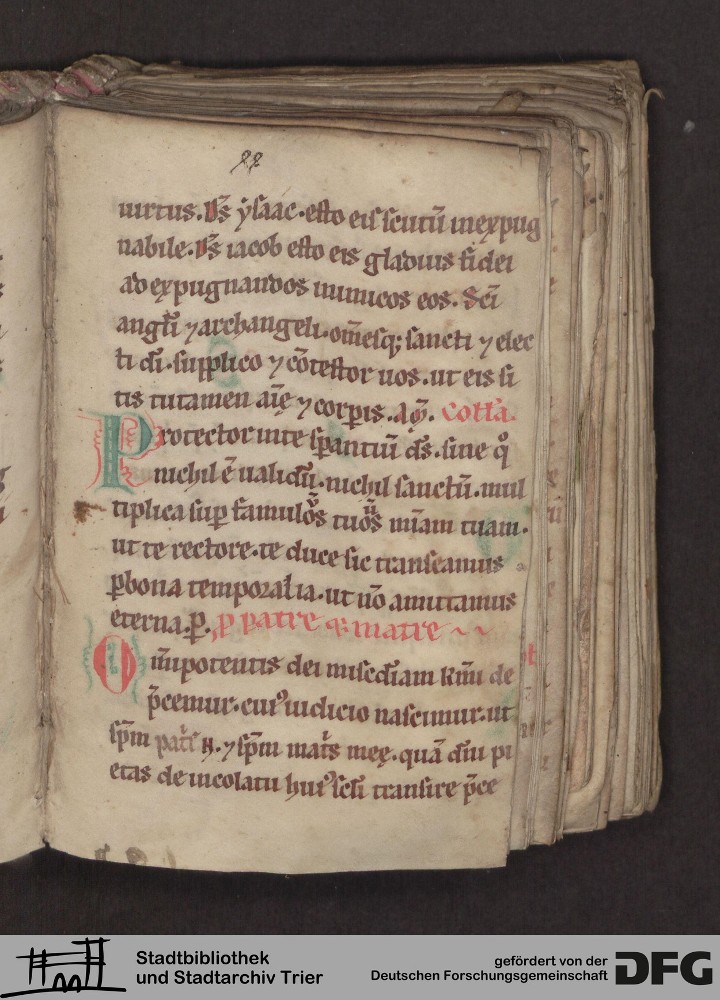 22
uirtus. Ds ẏsaac. esto eis scutū inexpug
nabile. Ds iacob esto eis gladius fidei
ad expugnandos inimicos eos. Sc̄i
angl̄i ⁊ archangeli. om̄esq; sancti ⁊ elec
ti dī. supplico ⁊ cōtestor uos. ut eis si
tis tutamen aīę ⁊ corꝑis. am̄. Coll̄a.
Protector inte sꝑantiū ds̄. sine qͦ
nichil ē ualidū. nichil sanctū. mul
tiplica suꝑ famulos tuos mīam tuam.
ut te rectore. te duce sic transeamus
ꝑ bona temporalia. ut nō amittamus
eterna. ꝑ. ꝓ patre ⁊ matre
Om̄ipotentis dei miscd̄iam km̄i de
p̄cemur. cuiꝰ iudicio nascimur. ut
sp̄m patⁱs N. ⁊ sp̄m matⁱs meę. quā dīu pi
etas de incolatu huiꝰ scl̄i transire p̄ce
Stadtbibliothek
und Stadtarchiv Trier
gefördert von der
Deutschen Forschungsgemeinschaft
DFG